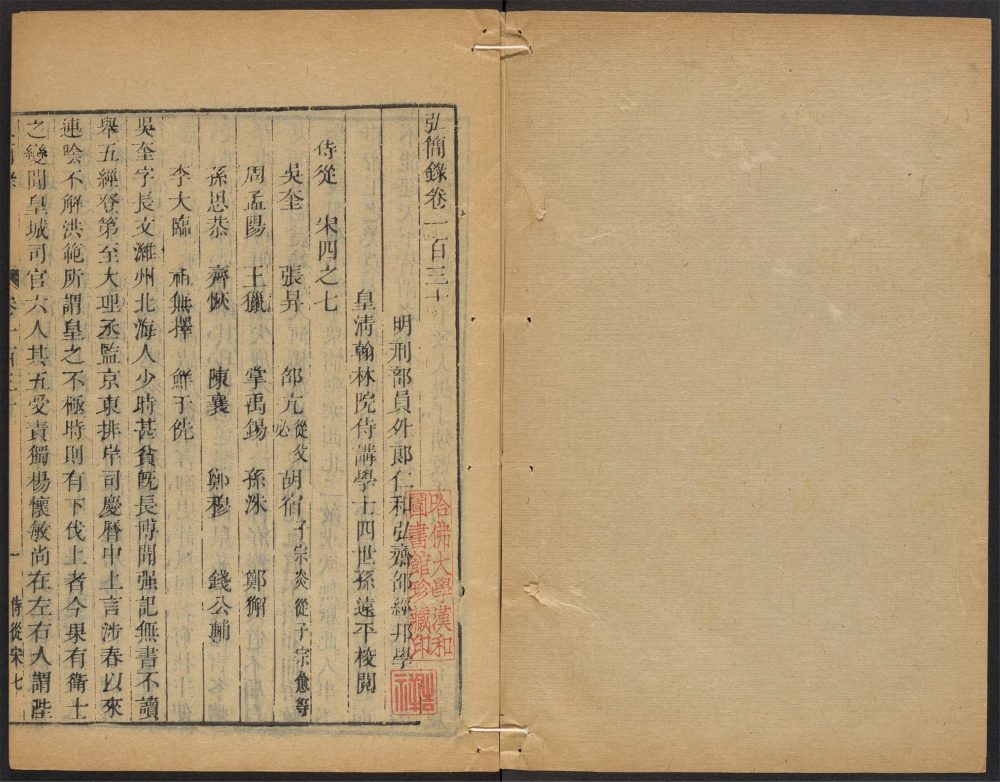 弘簡錄卷一百三十
明刑部員外郎仁和弘齋邵經邦學
皇清翰林院侍講學士四世孫遠平校閱
侍從 宋四之七
吳奎 張昇 邵亢 從父必 胡宿 子宗炎 從子宗愈等
周孟陽 王獵 掌禹錫 孫洙 鄭獬
孫思恭 齊恢 陳襄 鄭穆 錢公輔
李大臨 祖無擇 鮮于侁
吳奎字長文濰州北海人少時甚貧旣長博聞强記無書不讀
舉五經登第至大理丞監京東排岸司慶曆中上言涉春以來
連陰不解洪範所謂皇之不極時則有下伐上者今果有衛士
之變聞皇城司官六人其五受責獨楊懷敏尚在左右人謂陛
卷一百三十
一
侍從宋七
哈佛大學漢和
圖書館珍藏印